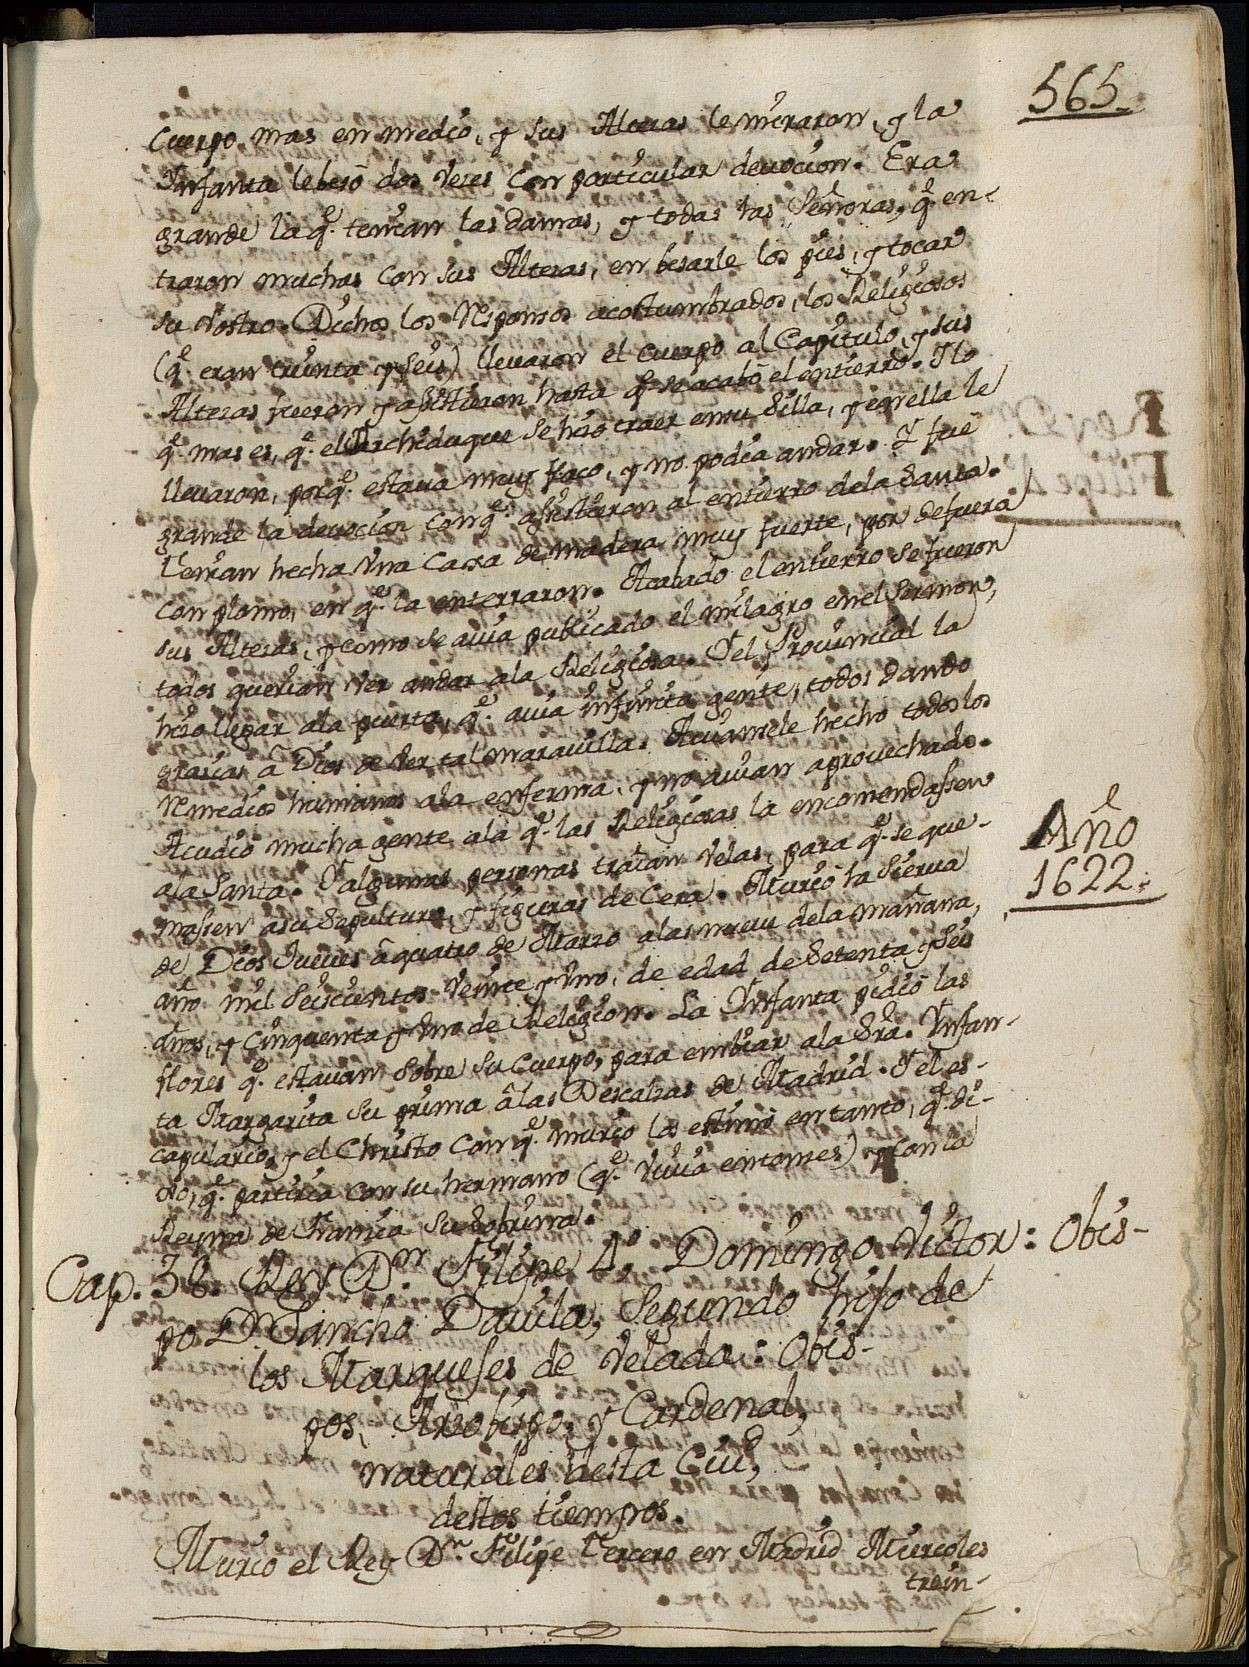 565
cuerpo mas en medio, y sus Altezas le miraron, y la
Infanta le besó dos veces con particular devocion. Era
grande la q.e tenian las damas, y todas las Señoras, q.e en-
traron muchas con sus Altezas, en besarle los pies, y tocar
su rostro. Dichos los responsos acostumbrados, los Religiosos
(q.e eran treinta y seis) llevaron el cuerpo al Capitulo, y sus
Altezas fueron y assistieron hasta q.e se acabó el entierro. I lo
q.e mas es, q.e el Archiduque se hizo traer en su Silla, y en ella le
llevaron, porq.e estava muy flaco, y no podia andar. I fue
grande la devocion conq.e assistieron al entierro dela Santa.
Tenian hecha vna Caxa de madera muy fuerte, por defuera
con plomo, en q.e la enterraron. Acabado el entierro se fueron
sus Altezas, y como se avia publicado el milagro enel Sermon,
todos querian ver andar ala Religiosa. I el Provincial la
hizo llegar ala puerta, q.e avia infinita gente, todos dando
gracias â Dios de ver tal maravilla. Avianele hecho todos los
remedios humanos ala enferma, y no avian aprovechado.
Acudió mucha gente ala q.e las Religiosas la encomendassen
ala Santa. I algunas personas traían velas, para q.e se que-
massen asu Sepultura, y figuras de Cera. Murió la Sierva
de Dios Jueves â quatro de Marzo alas nueve dela mañana,
año mil Seiscientos veinte y vno, de edad de Setenta y Seis
años, y Cinquenta y vno de Religion. La Infanta pidió las
flores q.e estavan Sobre Su Cuerpo, para embiar ala Sra. Infan-
ta Margarita Su prima âlas Descalzas de Madrid. I el es-
capulario, y el Christo con q.e murió los estimó en tanto, q.e di-
xo, q.e partiria con su hermano (q.e vivia entonces) y con la
Reyna de Francia Su Sobrina.
Año
1622.
Cap. 38. Rey D.n Filipe 4.o Domingo Victor: Obis-
po D. Sancho Davila, Segundo hijo de
los Marqueses de Velada: Obis-
pos, Arzobispo, y Cardenal,
naturales desta Ciud,
destos tiempos.
Murió el Rey D.n Filipe Tercero en Madrid Miercoles
trein-